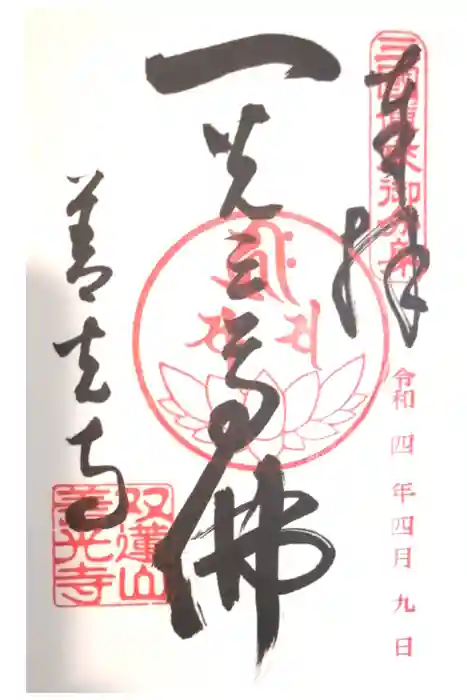 三國傳来御分身
奉拝
令和四年四月九日
一光三尊佛
善光寺
双蓮山
善光寺